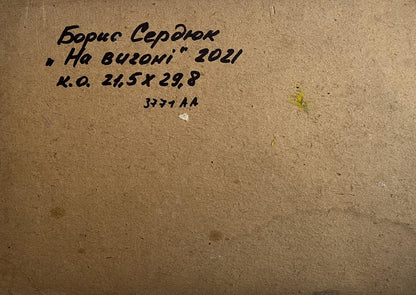 Борис Сердюк
„На вигоні" 2021
к.о. 21,5 х 29,8
3771 АА